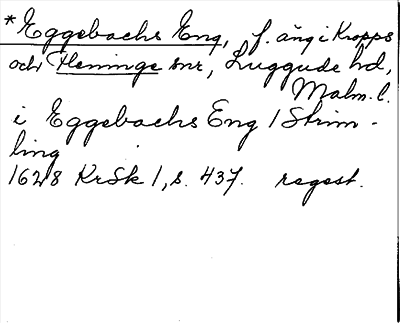 *Eggebachs Eng, f. äng i Kropps
och Fleninge snr, Luggude hd,
Malm. l.
i Eggebachs Eng 1 Strim-
ling
1628 KrSk 1, s. 437. regest.